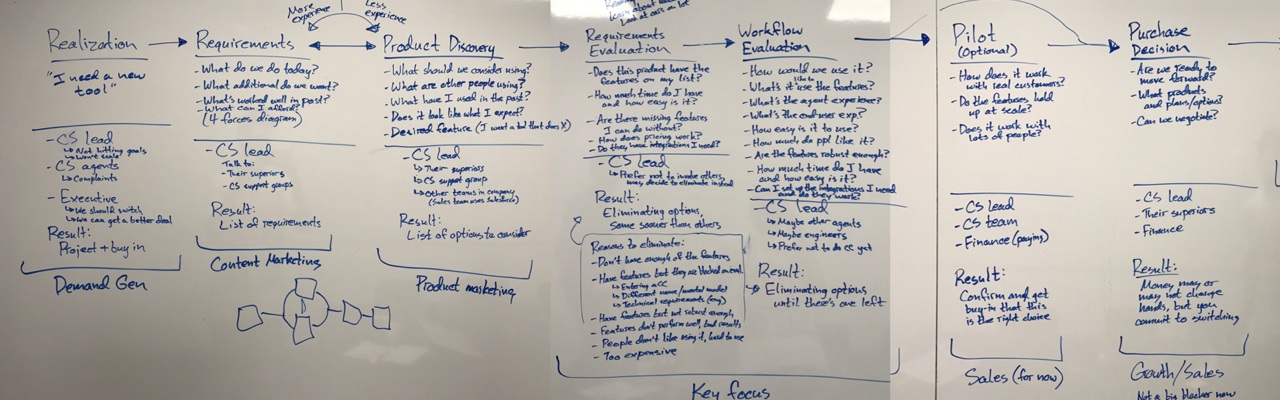 More experience
Less experience
Realization
"I need a new
tool"
- CS lead
↳ Not hitting goals
↳ Won't scale
- CS agents
↳ Complaints
- Executive
↳ We should switch
↳ We can get a better deal
Result:
Project + buy in
Demand Gen
Requirements
- What do we do today?
- What additional do we want?
- What's worked well in past?
- What can I afford?
(4 forces diagram)
- CS lead
Talk to:
- Their superiors
- CS support groups
Result:
List of requirements
Content Marketing
Product Discovery
- What should we consider using?
- What are other people using?
- What have I used in the past?
- Does it look like what I expect?
- Desired feature (I want a tool that does X)
- CS lead
↳ Their superiors
↳ CS support group
↳ Other teams in company
(Sales team uses Salesforce)
Result:
List of options to consider
Product marketing
Learn about
Look at cases on lot
Requirements
Evaluation
- Does this product have the
features on my list?
- How much time do I have
and how easy is it?
- Are there missing features
I can do without?
- How does pricing work?
- Do they have integrations I need?
- CS lead
↳ Prefer not to involve others,
may decide to eliminate instead
Result:
Eliminating options,
some sooner than others
Reasons to eliminate:
- Don't have enough of the features
- Have features but they are blocked on eval
↳ Entering a CC
↳ Different name/mental model
↳ Technical requirements (eng)
- Have features but not robust enough
- Features don't perform well, bad results
- People don't like using it, hard to use
- Too expensive
Workflow
Evaluation
- How would we use it?
- What's it like to use the features?
- What's the agent experience?
- What's the enduser exp?
- How easy is it to use?
- How much do ppl like it?
- Are the features robust enough?
- How much time do I have
and how easy is it?
- Can I set up the integrations I need
and do they work?
- CS lead
↳ Maybe other agents
↳ Maybe engineers
↳ Prefer not to do CC yet
Result:
Eliminating options
until there's one left
Key focus
Pilot
(Optional)
- How does it work
with real customers?
- Do the features hold
up at scale?
- Does it work with
lots of people?
- CS lead
- CS team
- Finance (paying)
Result:
Confirm and get
buy-in that this
is the right choice
Sales (for now)
Purchase
Decision
- Are we ready to
move forward?
- What products
and plans/options?
- Can we negotiate?
- CS lead
- Their superiors
- Finance
Result:
Money may or
may not change
hands, but you
commit to switching
Growth/Sales
Not a big blocker now